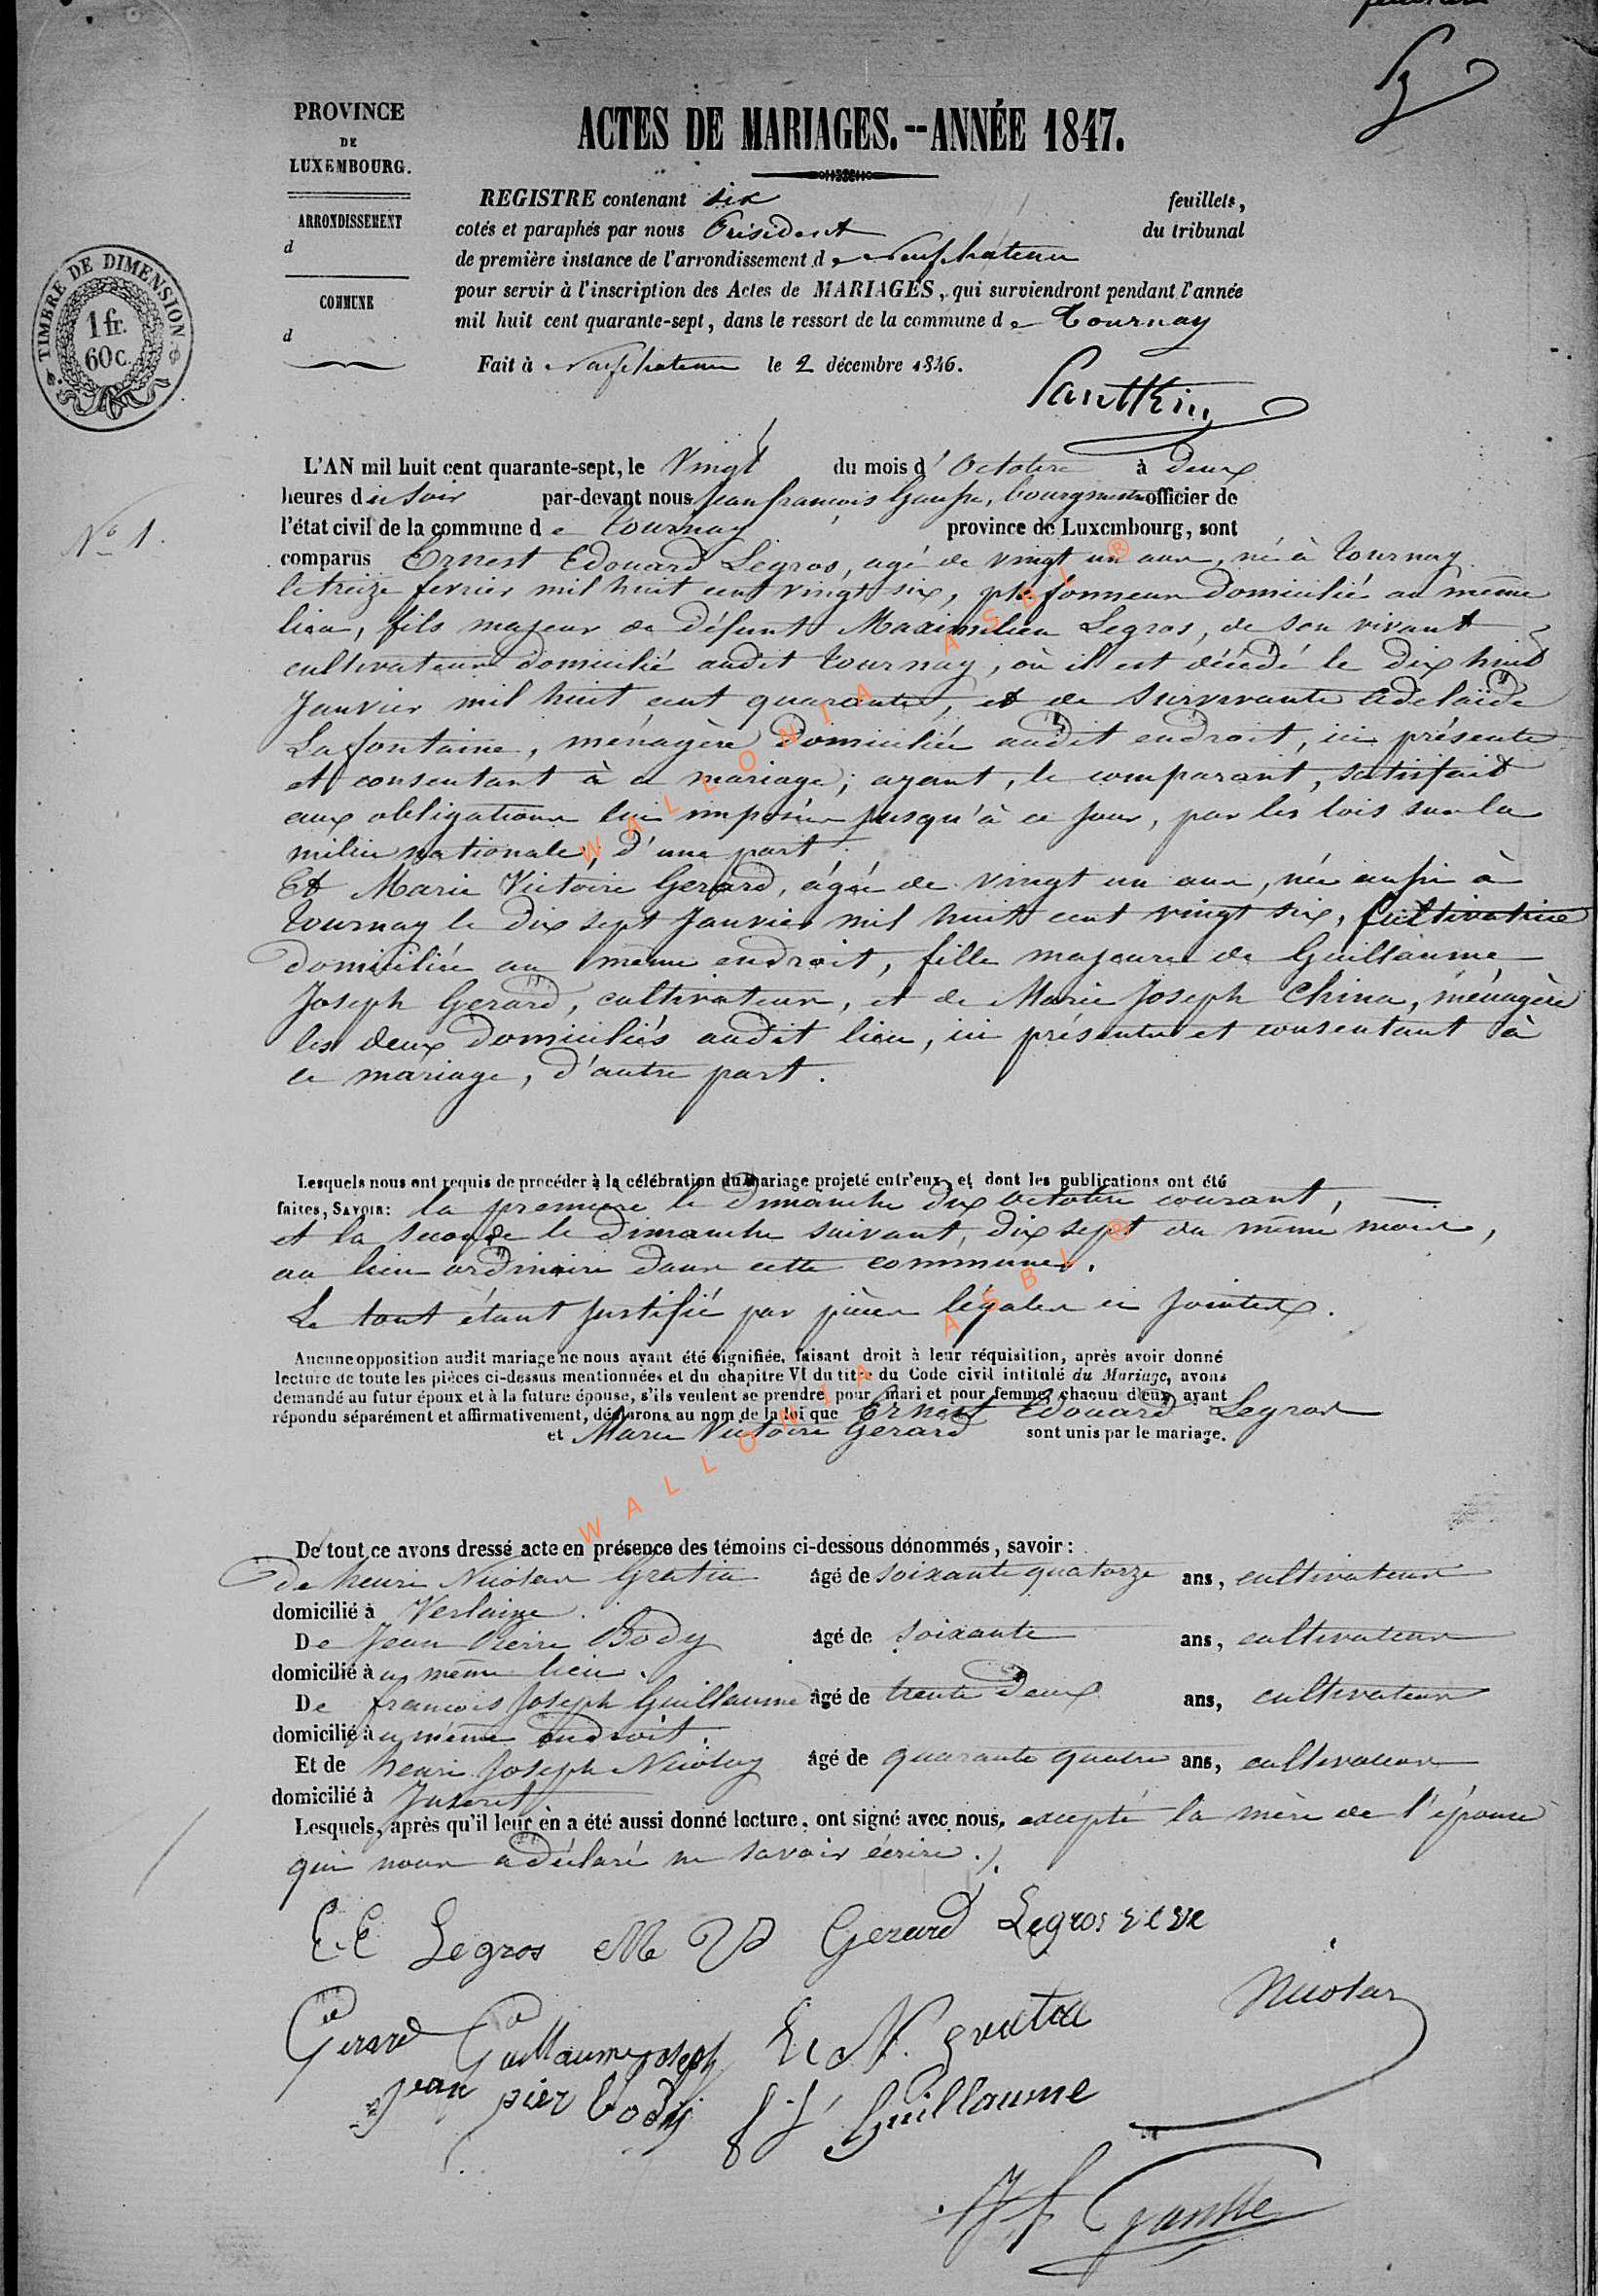 PROVINCE
DE
LUXEMBOURG.
ARRONDISSEMENT
d
COMMUNE
d
TIMBRE DE DIMENSION
1 fr.
60 c.
ACTES DE MARIAGES.--ANNÉE 1847.
REGISTRE contenant six feuillets,
cotés et paraphés par nous Président du tribunal
de première instance de l'arrondissement de Neufchateau
pour servir à l'inscription des Actes de MARIAGES, qui surviendront pendant l'année
mil huit cent quarante-sept, dans le ressort de la commune de Tournay
Fait à Neufchateau le 2 décembre 1846.
No 1.
L'AN mil huit cent quarante-sept, le Vingt du mois d'Octobre à deux
heures du soir par-devant nous Jean françois Gausse, bourgmestre officier de
l'état civil de la commune de Tournay province de Luxembourg, sont
comparus Ernest Edouard Legros, agé de vingt un ans, né à Tournay
le treize fevrier mil huit cent vingt six, plafonneur domicilié au même
lieu, fils majeur de défunt Maximilien Legros, de son vivant
cultivateur domicilié audit Tournay, où il est décédé le dix huit
Janvier mil huit cent quarante, et de survivante Adelaïde
Lafontaine, ménagère domiciliée audit endroit, ici présente
et consentant à ce mariage; ayant, le comparant, satisfait
aux obligations lui imposées jusqu'à ce jour, par les lois sur la
milice nationale, d'une part.
Et Marie Victoire Gerard, agée de vingt un ans, née aussi à
Tournay le dix sept Janvier mil huit cent vingt six, Cultivatrice
domiciliée au même endroit, fille majeure de Guillaume
Joseph Gerard, cultivateur, et de Marie Joseph China, ménagère
les deux domiciliés audit lieu, ici présents et consentant à
ce mariage, d'autre part.
Lesquels nous ont requis de procéder à la célébration du mariage projeté entr'eux, et dont les publications ont été
faites, SAVOIR: la première le dimanche dix octobre courant,
et la seconde le dimanche suivant, dix sept du même mois,
au lieu ordinaire dans cette commune.
Le tout étant justifié par pièces légales ci jointes.
Aucune opposition audit mariage ne nous ayant été signifiée, faisant droit à leur réquisition, après avoir donné
lecture de toute les pièces ci-dessus mentionnées et du chapitre VI du titre du Code civil intitulé du Mariage, avons
demandé au futur époux et à la future épouse, s'ils veulent se prendre pour mari et pour femme, chacun d'eux ayant
répondu séparément et affirmativement, déclarons au nom de la loi que Ernest Edouard Legros
et Marie Victoire Gerard sont unis par le mariage.
De tout ce avons dressé acte en présence des témoins ci-dessous dénommés, savoir:
de henri Nicolas Gratia âgé de soixante quatorze ans, cultivateur
domicilié à Verlaine.
De Jean Pierre Body âgé de soixante ans, cultivateur
domicilié à u même lieu.
De françois Joseph Guillaume âgé de trente deux ans, cultivateur
domicilié à u même endroit.
Et de henri Joseph Nicolay âgé de quarante quatre ans, cultivateur
domicilié à Juseret
Lesquels, après qu'il leur en a été aussi donné lecture, ont signé avec nous, excepté la mère de l'épouse
qui nous a déclaré ne savoir écrire.
E. E Legros M V Gerard Legros veve
Gerard Guillaume joseph h N. gratia Nicolas
jean pier body f j Guillaume
J f Gausse
WALLONIA ASBL ®
WALLONIA ASBL ®